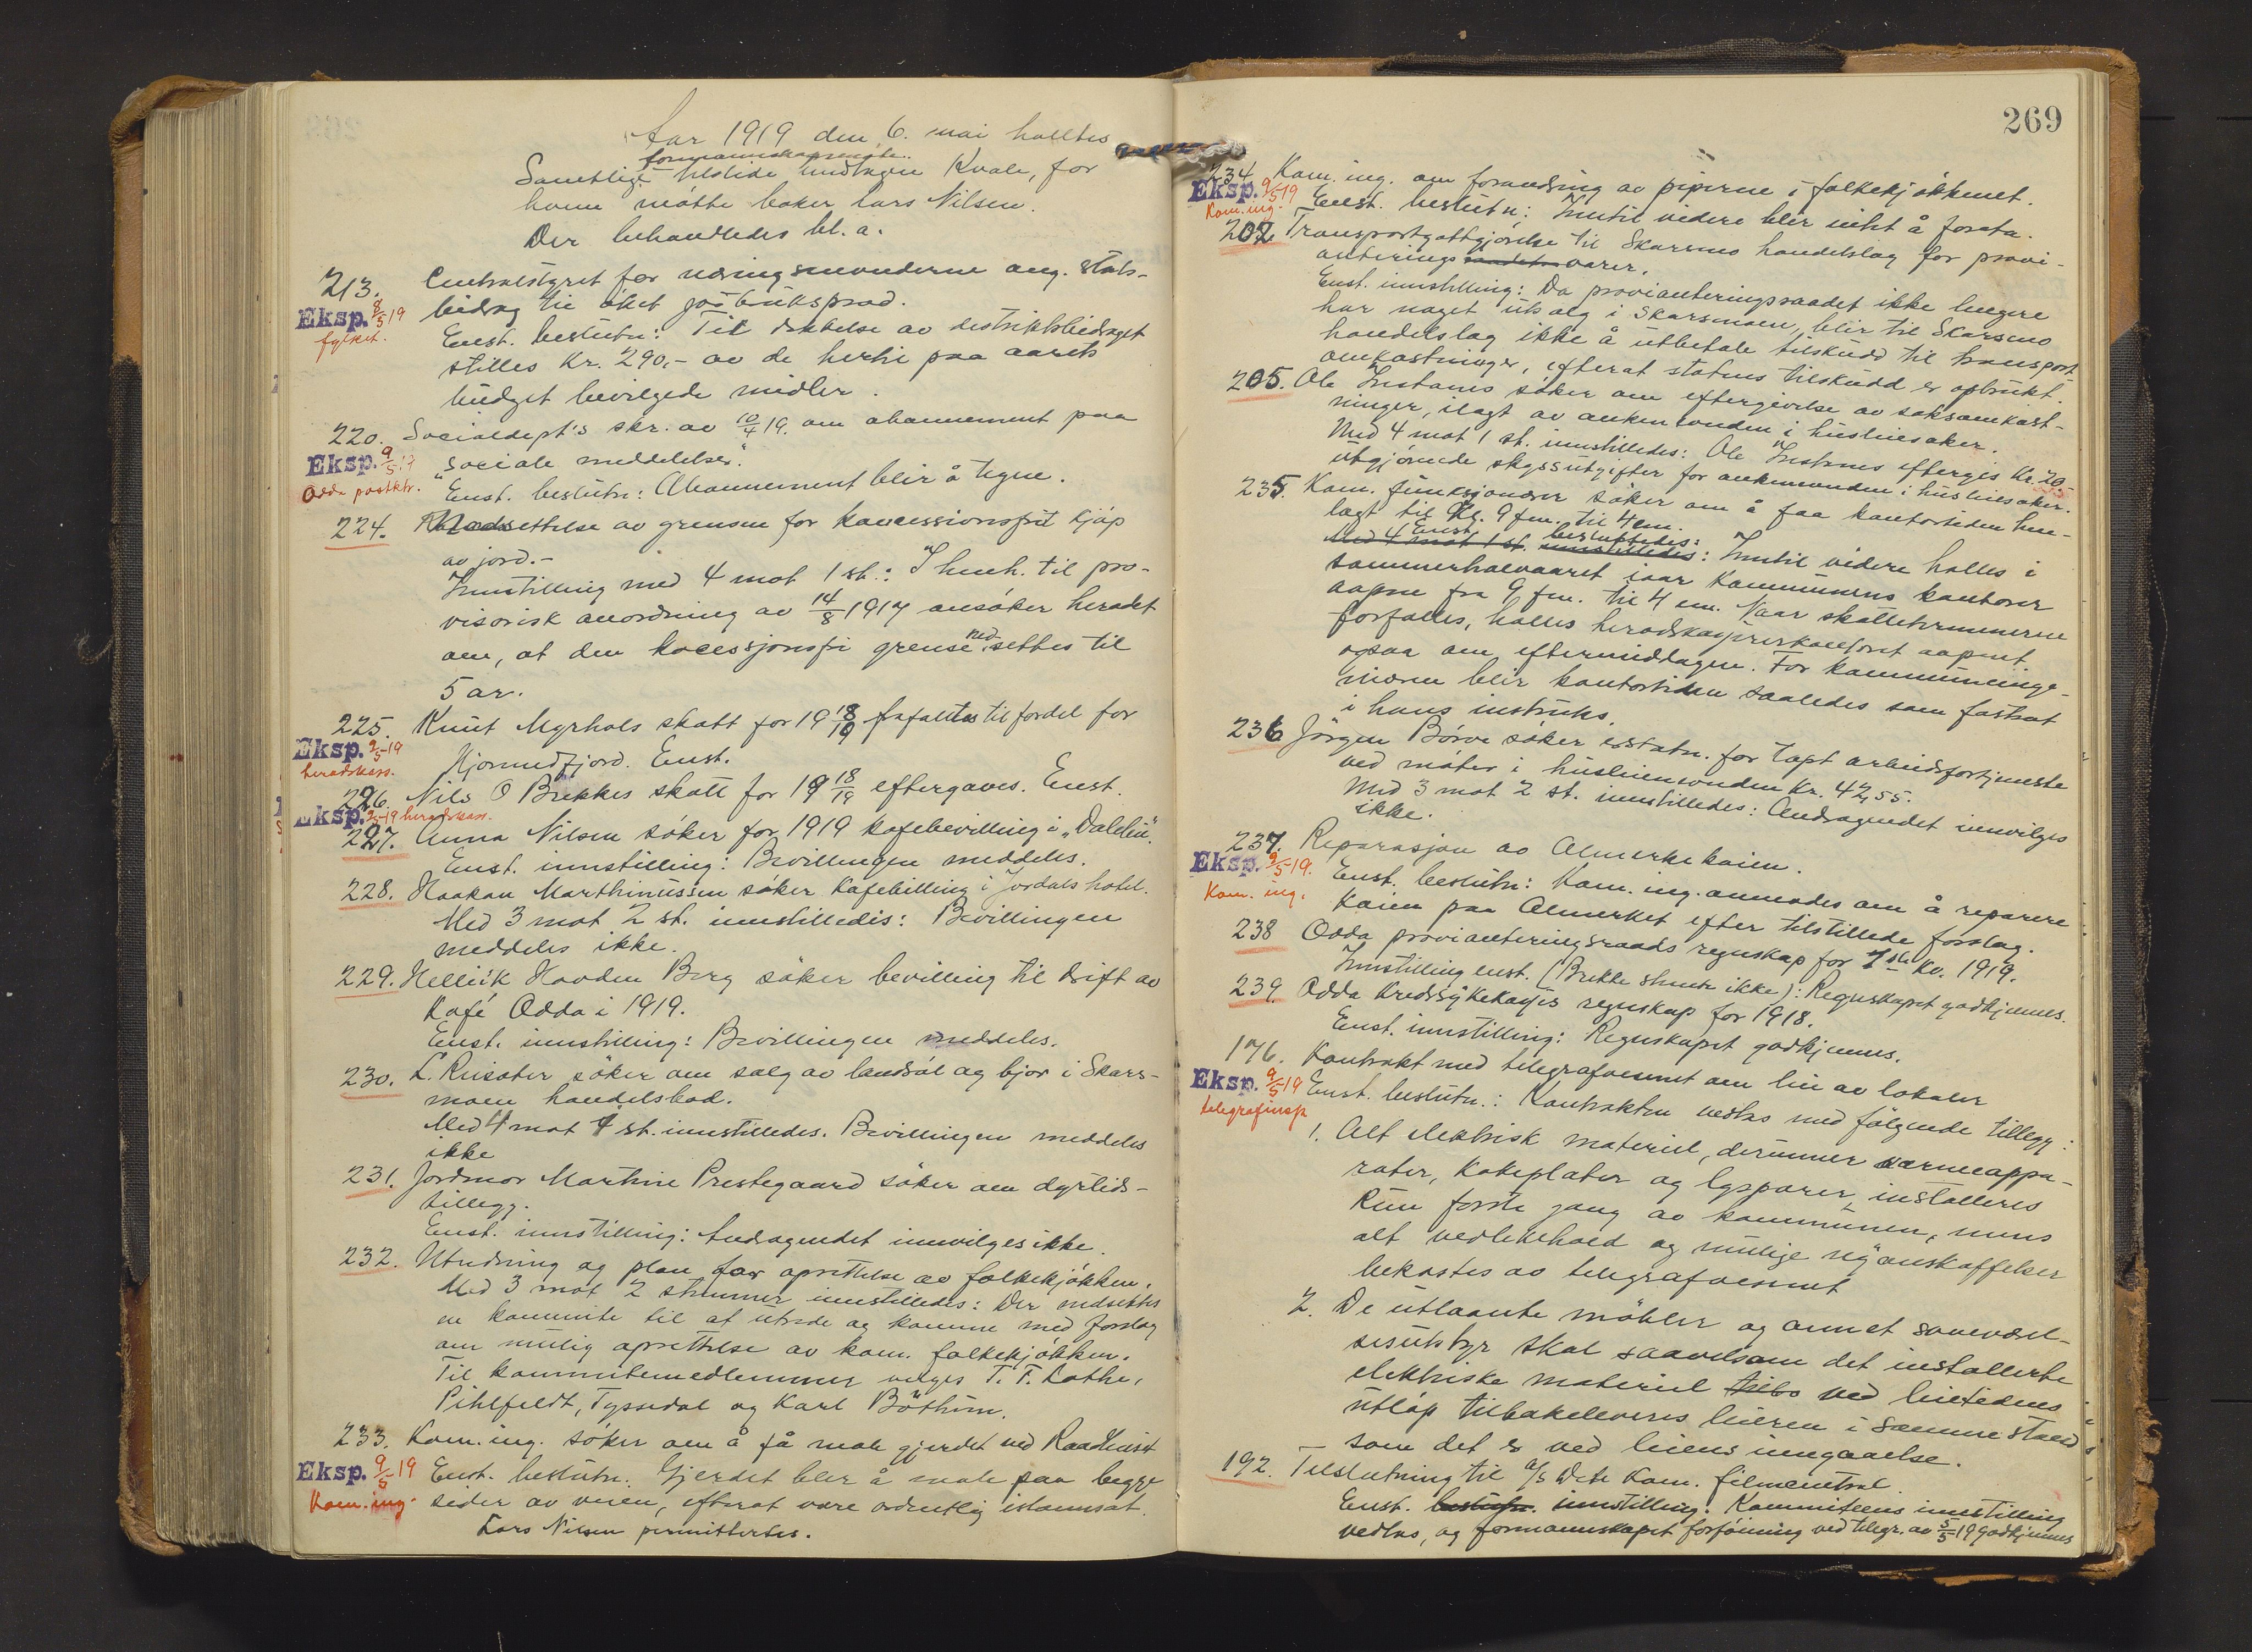 Aar 1919 den 6. mai holltes
formannskapsmøte.
Samtlige tilstede undtagen Kvale, for
ham møtte baker Lars Nilsen.
Der behandledes bl. a.
213. Centralstyret for næringsnevnderne ang. stats-
Eksp. 8/5 19 bidrag til øket jordbruksprod.
fylket. Enst. beslutn: Til dekkelse av distriktsbidraget
stilles Kr. 290,- av de hertil paa aarets
budget bevilgede midler.
220. Socialdept's skr. av 10/4 19. om abonnement paa
Eksp. 9/5 19 "sociale meddelelser".
Odda postktr. Enst. beslutn: Abonnement blir å tegne.
224. Nedsettelse av grensen for koncessionsfrit kjøp
av jord.-
Innstilling med 4 mot 1 st.: I henh. til pro-
visorisk anordning av 14/8 1917 ansøker heradet
om, at den kocessjonsfri grense nedsettes til
5 ar.
225. Knut Myrhols skatt for 19 18/19 frafalles til fordel for
Eksp. 9/5-19 Hjørundfjord. Enst.
heradskass.
226. Nils O Brekkes skatt for 19 18/19 eftergaves. Enst.
Eksp. 9/5-19 heradskass.
227. Anna Nilsen søker for 1919 kafebevilling i "Dalelia".
Enst. innstilling: Bevillingen meddeles.
228. Haakon Marthinussen søker kafebilling i Jordals hotel.
Med 3 mot 2 st. innstilledes: Bevillingen
meddeles ikke.
229. Helleik Hovden Berg søker bevilling til drift av
Kafé Odda i 1919.
Enst. innstilling: Bevillingen meddeles.
230. L. Reisæter søker om salg av landsøl og bjor i Skars-
moen handelsbod.
Med 4 mot 1 st. innstilledes. Bevillingen meddeles
ikke
231. Jordmor Martine Prestegaard søker om dyrtids-
tillegg.
Enst. innstilling: Andragendet innvilges ikke.
232. Utredning og plan for oprettelse av folkekjøkken.
Med 3 mot 2 stemmer innstilledes: Der nedsettes
en kommite til at utrede og komme med forslag
om mulig oprettelse av kom. folkekjøkken.
Til kommitemedlemmer velges T. T. Lothe,
Pihlfeldt, Tyssedal og Karl Bøthun.
233. Kom. ing. søker om å få male gjerdet ved Raadhuset
Eksp. 9/5 19 Enst. beslutn. Gjerdet blir å male paa begge
Kom. ing. sider av veien, efterat være ordentlig istannsat.
Lars Nilsen permitteres.
269
234. Kom. ing. om forandring av piperne i folkekjøkkenet.
Eksp. 9/5 19 Enst. beslutn: Inntil videre blir intet å foreta.
Kom. ing.
202. Transportgottgjørelse til Skarsmo handelslag for provi-
anterings varer.
Enst. innstilling: Da provianteringsraadet ikke lengere
har noget utsalg i Skarsmoen, blir til Skarsmo
handelslag ikke å utbetale tilskudd til transport-
omkostninger, efterat statens tilskudd er opbrukt.
205. Ole Instanes søker om eftergivelse av saksomkost-
ninger, ilagt av ankenevnden i husleiesaker.
Med 4 mot 1 st. innstilledes: Ole Instanes eftergis Kr. 20.-
utgjørende skyssutgifter for ankenevnden i husleiesaker.
235. Kom. funksjonærer søker om å faa kontortiden hen-
lagt til kl. 9 fm. til 4 em.
Enst. besluttedes:
Med 4 mot 1 st. innstilledes: Inntil videre holles i
sommerhalvaaret iaar kommunens kontorer
aapne fra 9 fm. til 4 em. Naar skatteterminerne
forfalles, holles heradskasserkontoret aapent
ogsaa om eftermiddagen. For kommuneinge-
niøren blir kontortiden saaledes som fastsat
i hans instruks.
236 Jørgen Børve søker erstatn. for tapt arbeidsfortjeneste
ved møter i husleienevnden Kr. 42,55.
Med 3 mot 2 st. innstilledes: Andragendet innvilges
ikke.
237. Reparasjon av Almerkekaien.
Eksp. 9/5-19. Enst. beslutn: Kom. ing. anmodes om å reparere
Kom. ing. kaien paa Almerket efter tilstillede forslag.
238 Odda provianteringsraads regnskap for 1ste kv. 1919.
Innstilling enst. (Brekke stemte ikke): Regnskapet godkjennes.
239 Odda Kredssykekasses regnskap for 1918.
Enst. innstilling: Regnskapet godkjennes.
176. Kontrakt med telegrafvesenet om leie av lokaler
Eksp. 9/5-19 Enst. beslutn.: Kontrakten vedtas med følgende tillegg:
telegrafinsp
1. Alt elektrisk materiel, derunner varmeappa-
rater, kokeplater og lyspærer, installeres
kun første gang av kommunen, mens
alt vedlikehold og mulige nyanskaffelser
bekostes av telegrafvesenet
2. De utlaante møbler og annet soveværel-
sesutstyr skal saavelsom det installerte
elektriske materiel ved leietidens
utløp tilbakeleveres leieren i samme stand
som det er ved leiens inngaaelse.
192. Tilslutning til A/S Dete Kom. filmcentral.
Enst. beslutn. innstilling: Kommiteens innstilling
vedtas, og formannskapets forføining ved telegr. av 5/5 19 godkjennes